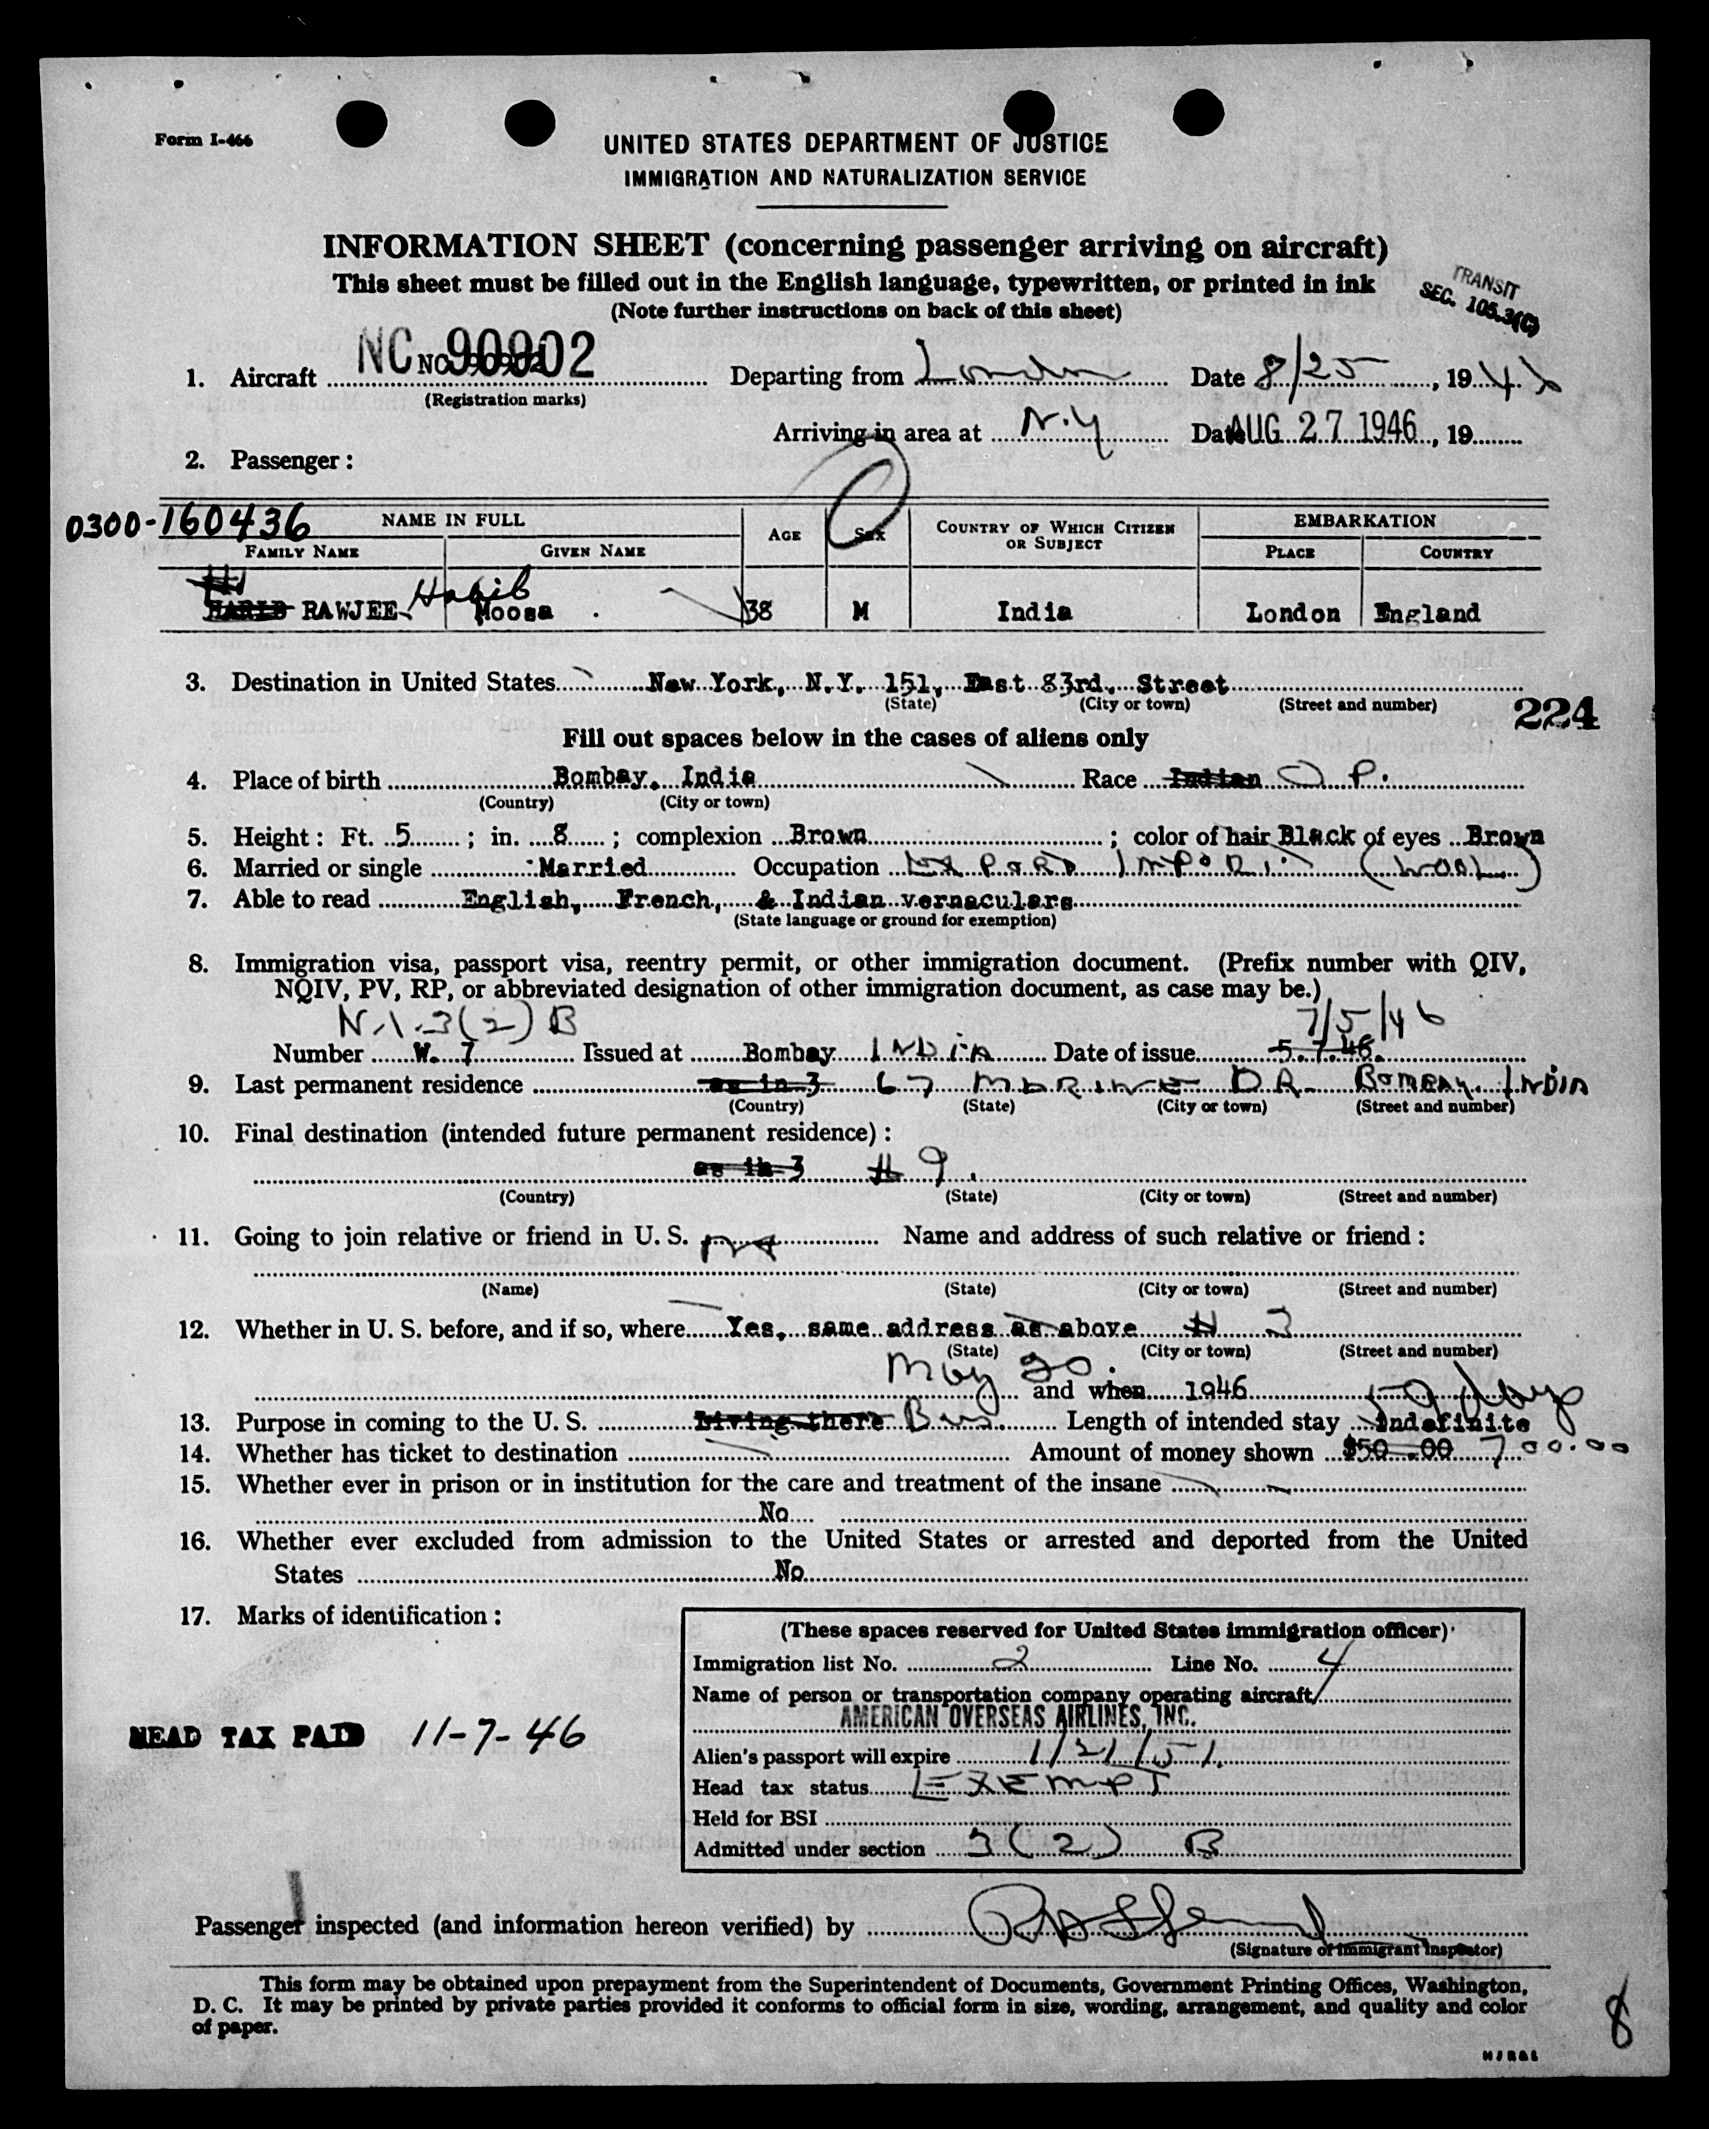 Form I-466
UNITED STATES DEPARTMENT OF JUSTICE
IMMIGRATION AND NATURALIZATION SERVICE
INFORMATION SHEET (concerning passenger arriving on aircraft)
This sheet must be filled out in the English language, typewritten, or printed in ink
(Note further instructions on back of this sheet)
TRANSIT
SEC. 105.3(C)
1. Aircraft NC 90902 Departing from London Date 8/25, 1946
(Registration marks)
Arriving in area at N.Y Date AUG 27 1946, 19
2. Passenger:
0300-160436 NAME IN FULL AGE SEX COUNTRY OF WHICH CITIZEN OR SUBJECT EMBARKATION
FAMILY NAME GIVEN NAME PLACE COUNTRY
HABIB RAWJEE Habib Moosa 38 M India London England
3. Destination in United States New York, N.Y. 151, East 83rd, Street
(State) (City or town) (Street and number)
224
Fill out spaces below in the cases of aliens only
4. Place of birth Bombay, India Race Indian O P.
(Country) (City or town)
5. Height: Ft. 5; in. 8; complexion Brown; color of hair Black of eyes Brown
6. Married or single Married Occupation IMPORT (WOOL)
7. Able to read English, French, & Indian vernaculars
(State language or ground for exemption)
8. Immigration visa, passport visa, reentry permit, or other immigration document. (Prefix number with QIV,
NQIV, PV, RP, or abbreviated designation of other immigration document, as case may be.)
N.I. 3(2) B 7/5/46
Number W. 7 Issued at Bombay INDIA Date of issue 5.7.46.
9. Last permanent residence as in 3 67 MARINE DR BOMBAY. INDIA
(Country) (State) (City or town) (Street and number)
10. Final destination (intended future permanent residence):
as in 3 # 9.
(Country) (State) (City or town) (Street and number)
11. Going to join relative or friend in U. S. Name and address of such relative or friend:
(Name) (State) (City or town) (Street and number)
12. Whether in U. S. before, and if so, where Yes, same address as above # 3
(State) (City or town) (Street and number)
May 20. and when 1946
13. Purpose in coming to the U. S. Living there Bus Length of intended stay Indefinite days
14. Whether has ticket to destination Amount of money shown $50.00 700.00
15. Whether ever in prison or in institution for the care and treatment of the insane
No
16. Whether ever excluded from admission to the United States or arrested and deported from the United
States No
17. Marks of identification:
(These spaces reserved for United States immigration officer)
Immigration list No. 2 Line No. 4
Name of person or transportation company operating aircraft
AMERICAN OVERSEAS AIRLINES, INC.
HEAD TAX PAID 11-7-46
Alien's passport will expire 1/21/51.
Head tax status EXEMPT
Held for BSI
Admitted under section 3(2) B
Passenger inspected (and information hereon verified) by
(Signature of Immigrant Inspector)
This form may be obtained upon prepayment from the Superintendent of Documents, Government Printing Offices, Washington,
D. C. It may be printed by private parties provided it conforms to official form in size, wording, arrangement, and quality and color
of paper.
8